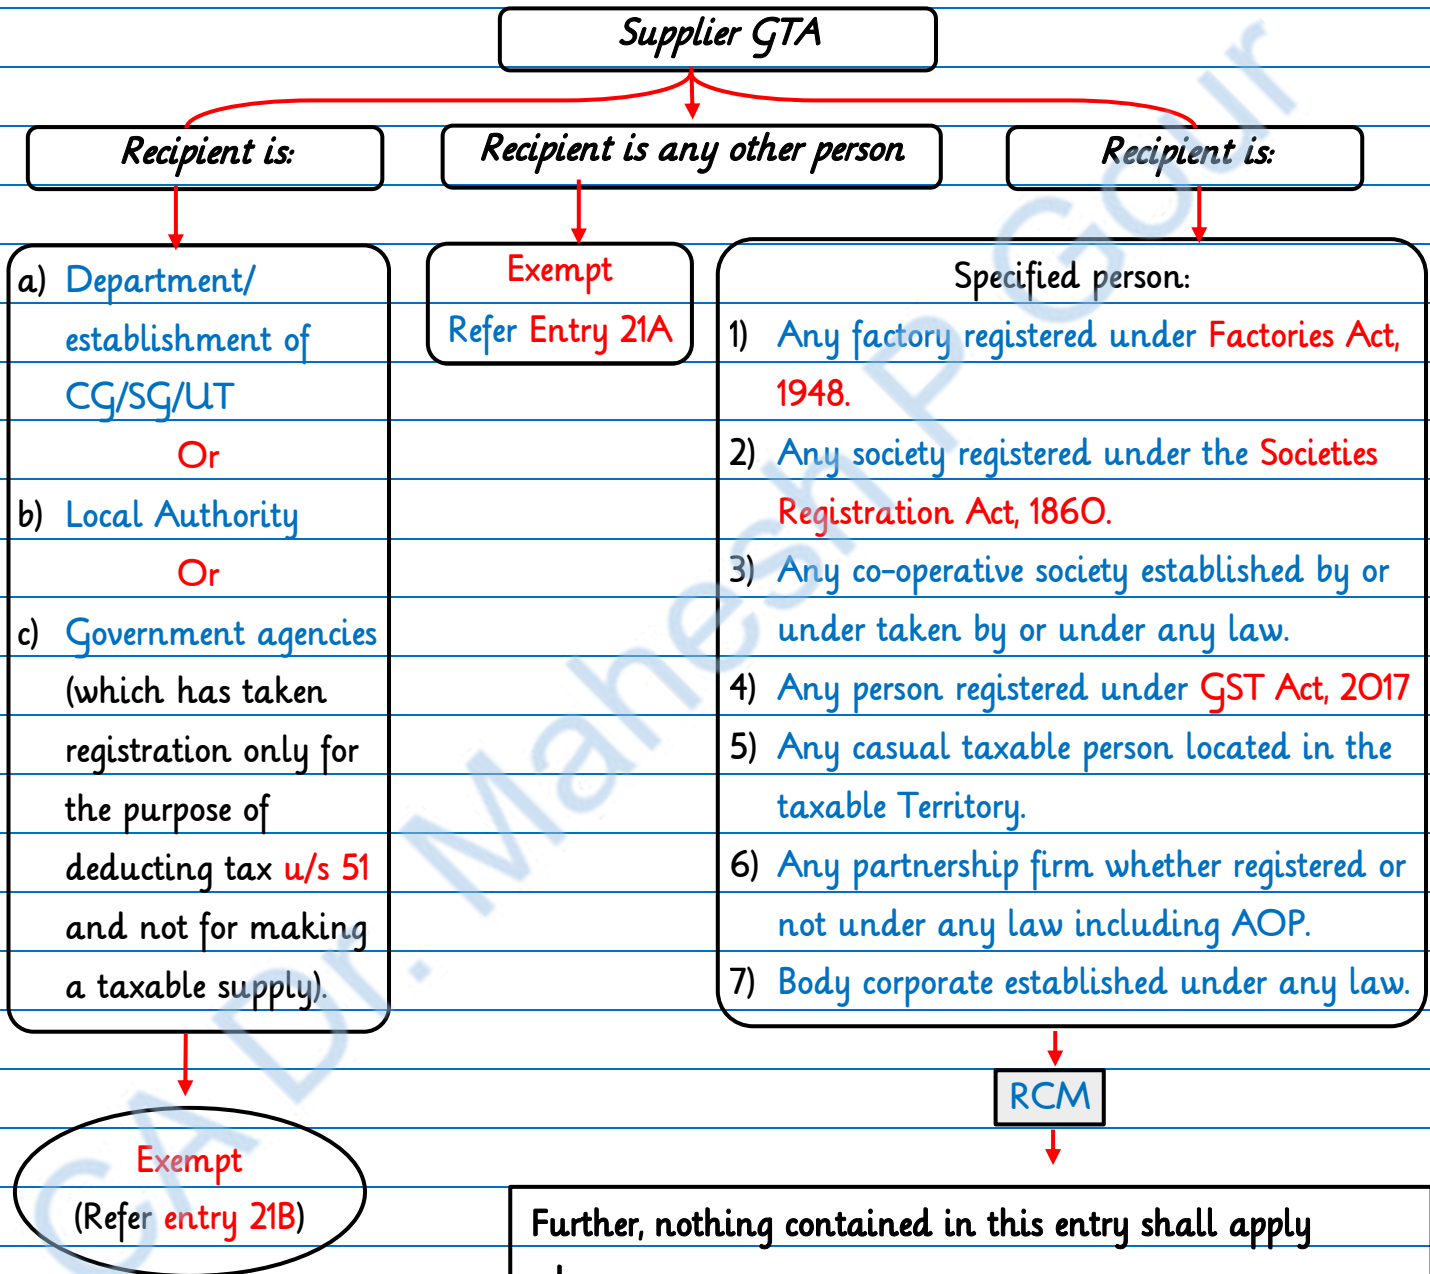 Supplier GTA
Recipient is:
Recipient is any other person
Recipient is:
a) Department/
establishment of
CG/SG/UT
Or
b) Local Authority
Or
c) Government agencies
(which has taken
registration only for
the purpose of
deducting tax u/s 51
and not for making
a taxable supply).
Exempt
(Refer entry 21B)
Exempt
Refer Entry 21A
Specified person:
1) Any factory registered under Factories Act,
1948.
2) Any society registered under the Societies
Registration Act, 1860.
3) Any co-operative society established by or
under taken by or under any law.
4) Any person registered under GST Act, 2017
5) Any casual taxable person located in the
taxable Territory.
6) Any partnership firm whether registered or
not under any law including AOP.
7) Body corporate established under any law.
RCM
Further, nothing contained in this entry shall apply
CA Dr. Mahesh P Gour